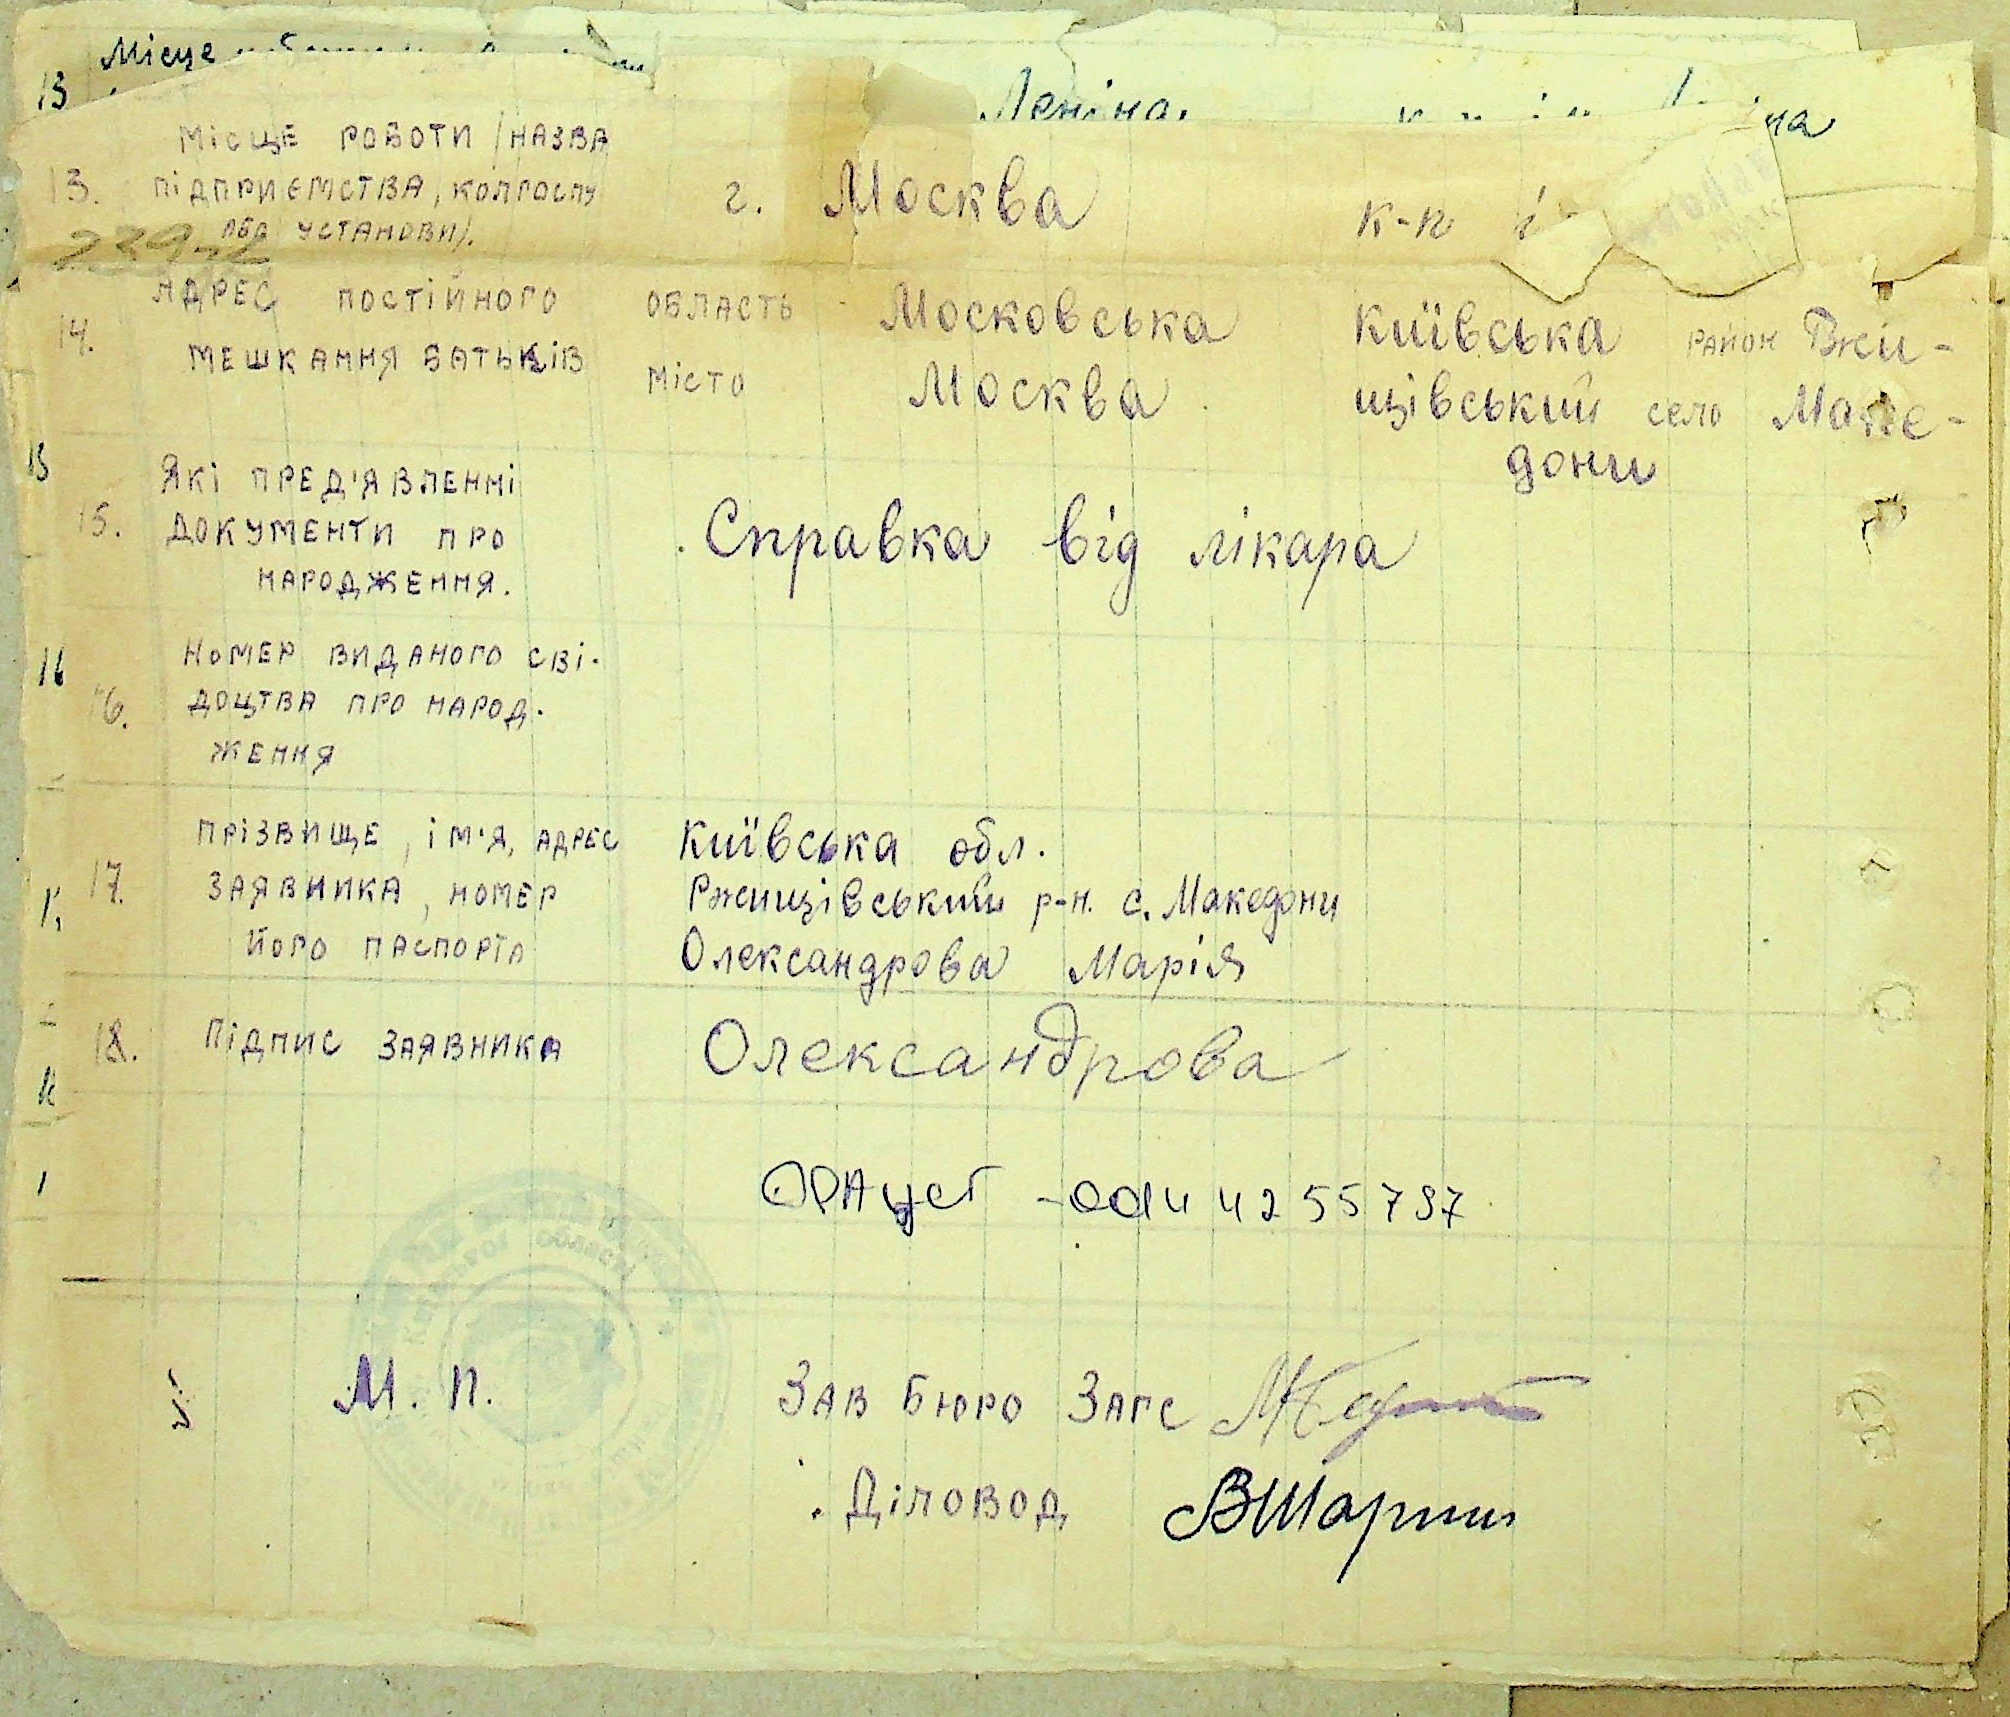 13 Місце
Леніна.
13. МІСЦЕ РОБОТИ /НАЗВА
ПІДПРИЄМСТВА, КОЛГОСПУ
АБО УСТАНОВИ/.
г. Москва
к-п і
14. АДРЕС ПОСТІЙНОГО
МЕШКАННЯ БАТЬКІВ
ОБЛАСТЬ Московська
МІСТО Москва
Київська РАЙОН Ржи-
щівський село Маке-
дони
15. ЯКІ ПРЕД'ЯВЛЕННІ
ДОКУМЕНТИ ПРО
НАРОДЖЕННЯ.
Справка від лікара
16. НОМЕР ВИДАНОГО СВІ-
ДОЦТВА ПРО НАРОД-
ЖЕННЯ
17. ПРІЗВИЩЕ, ІМ'Я, АДРЕС
ЗАЯВНИКА, НОМЕР
ЙОГО ПАСПОРТА
Київська обл.
Ржищівський р-н. с. Македони
Олександрова Марія
18. ПІДПИС ЗАЯВНИКА Олександрова
ОРАЦСГ
М. П. ЗАВ БЮРО ЗАГС
ДІЛОВОД